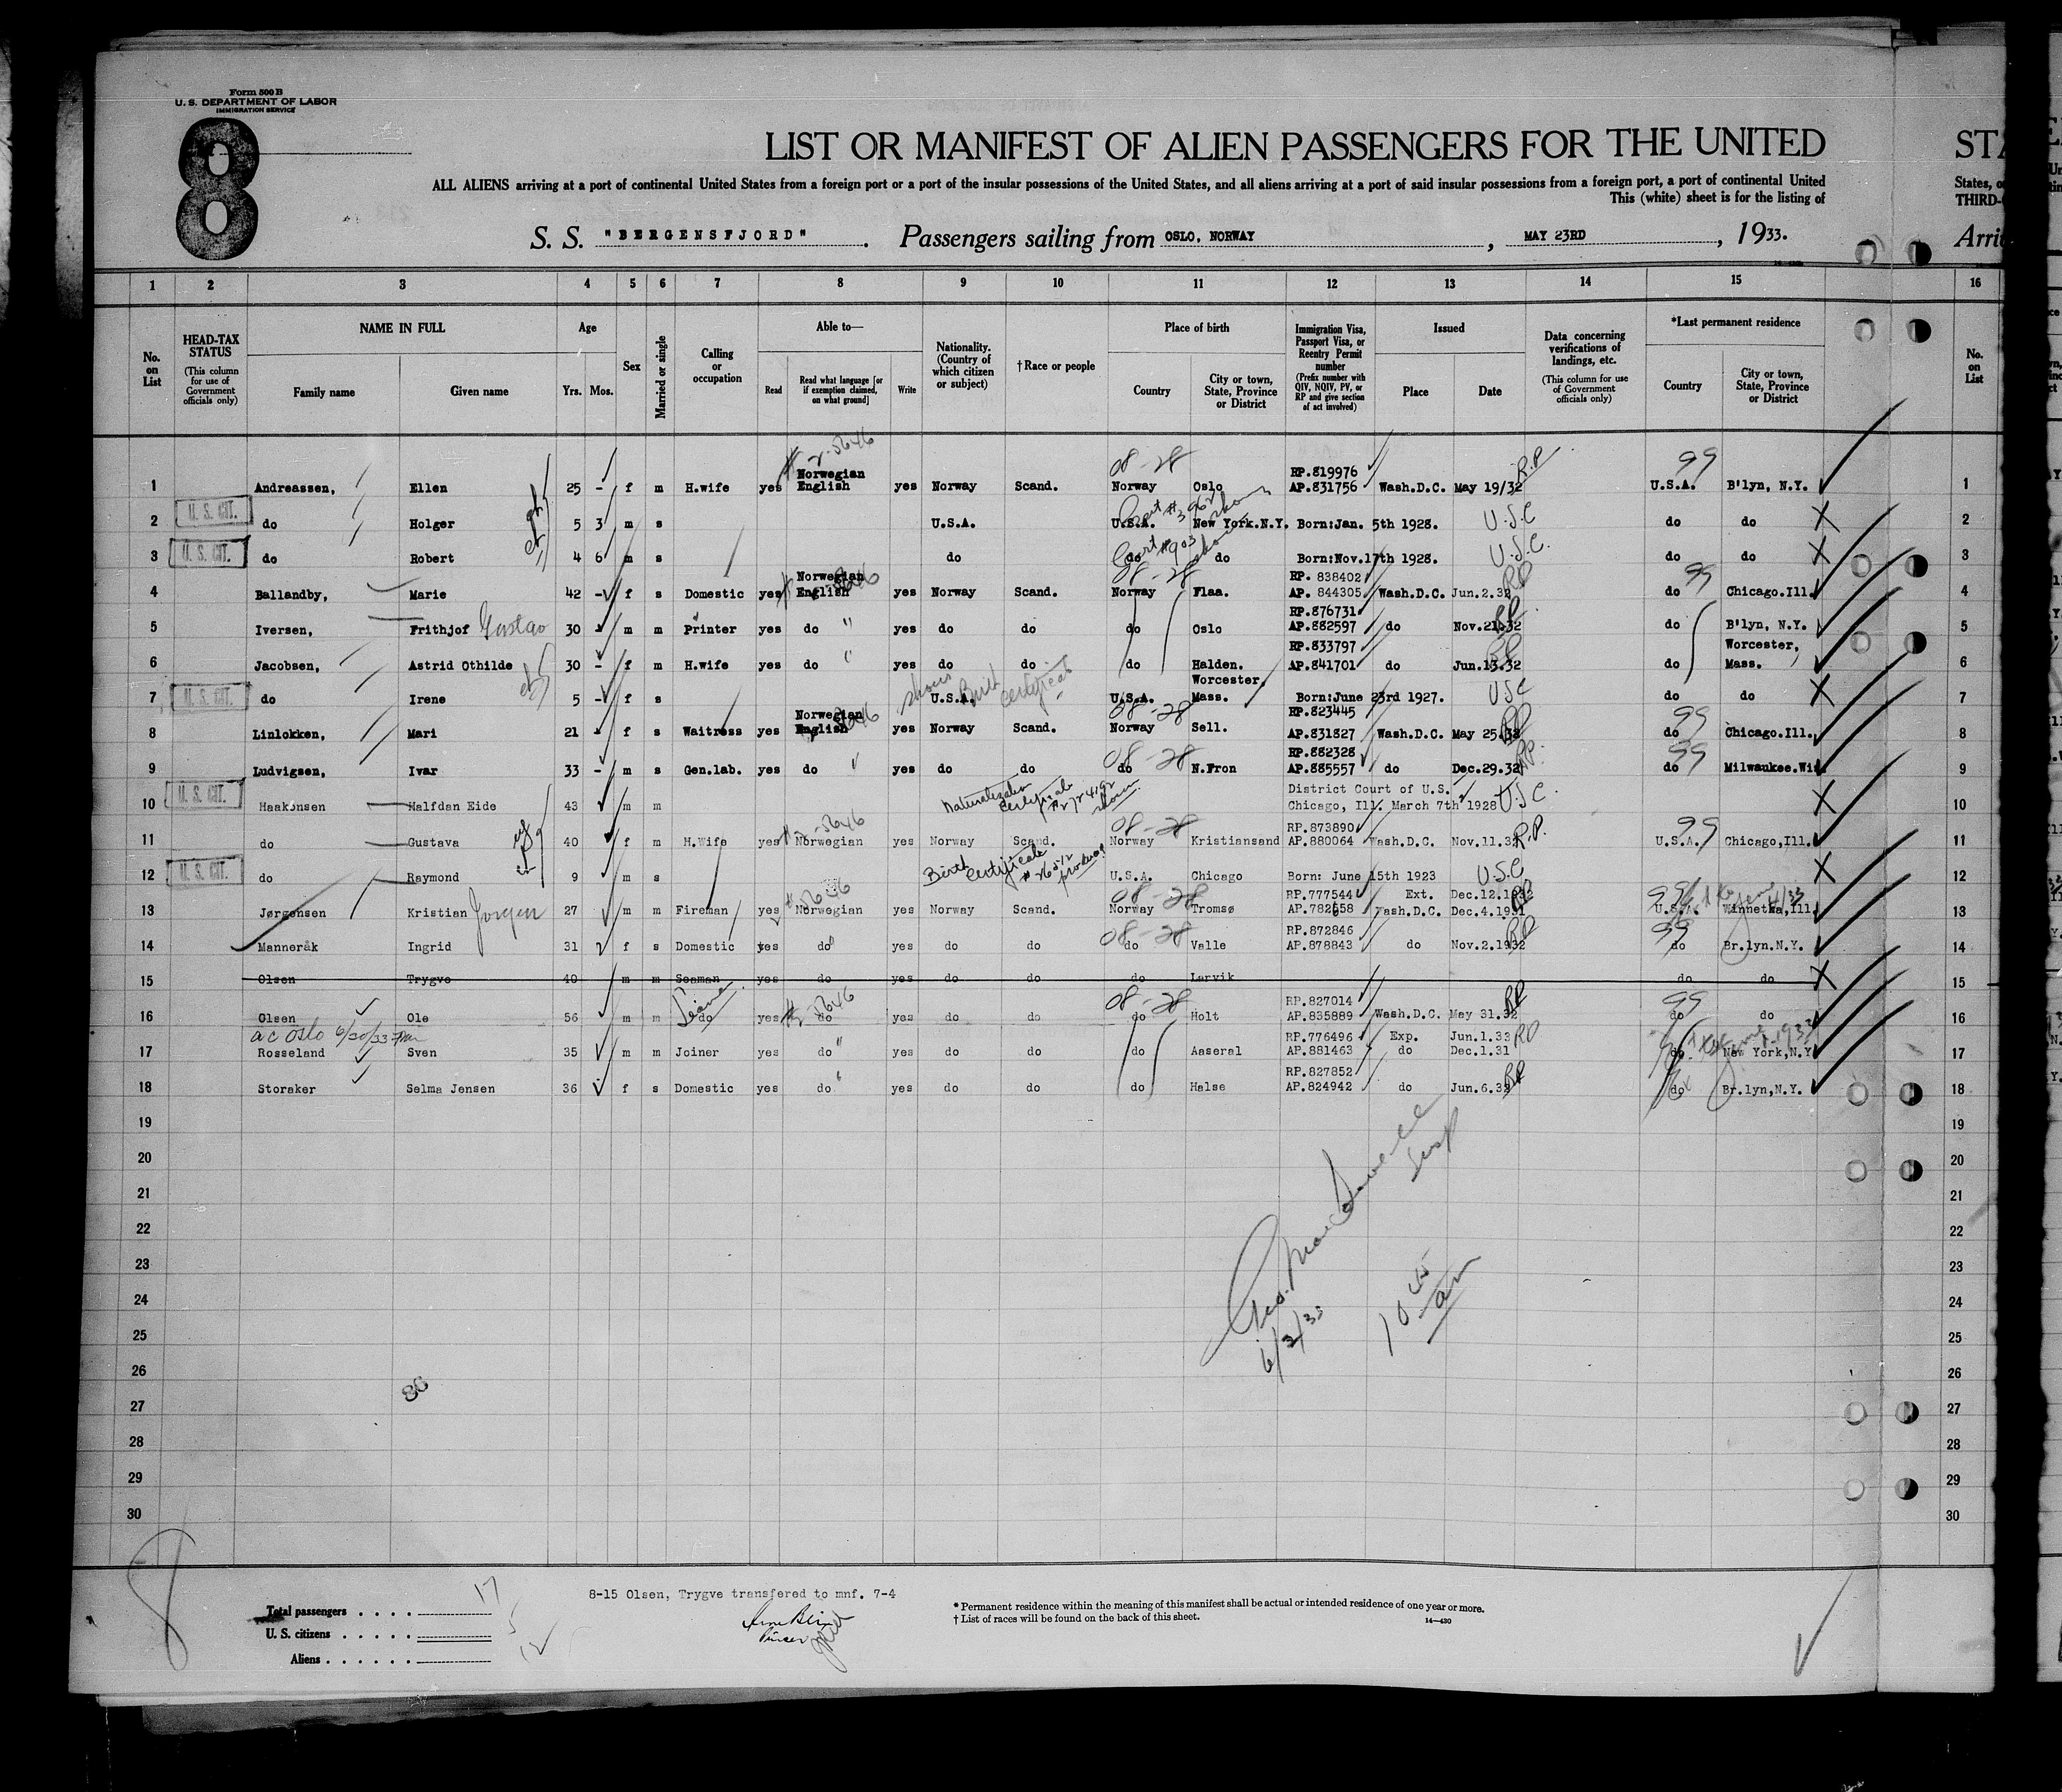 Form 500 B
U. S. DEPARTMENT OF LABOR
IMMIGRATION SERVICE
8
LIST OR MANIFEST OF ALIEN PASSENGERS FOR THE UNITED
ALL ALIENS arriving at a port of continental United States from a foreign port or a port of the insular possessions of the United States, and all aliens arriving at a port of said insular possessions from a foreign port, a port of continental United
This (white) sheet is for the listing of
S. S. "BERGENSFJORD". Passengers sailing from OSLO, NORWAY, MAY 23RD, 1933.
1 2 3 4 5 6 7 8 9 10 11 12 13 14 15 16
No. on List
HEAD-TAX STATUS (This column for use of Government officials only)
NAME IN FULL
Family name Given name
Age Yrs. Mos.
Sex
Married or single
Calling or occupation
Able to—
Read Read what language [or if exemption claimed, on what ground] Write
Nationality. (Country of which citizen or subject)
† Race or people
Place of birth
Country City or town, State, Province or District
Immigration Visa, Passport Visa, or Reentry Permit number (Prefix number with QIV, NQIV, PV, or RP and give section of act involved)
Issued
Place Date
Data concerning verifications of landings, etc. (This column for use of Government officials only)
*Last permanent residence
Country City or town, State, Province or District
No. on List
1 Andreassen, Ellen 25 - f m H.wife yes Norwegian English yes Norway Scand. 08-28 Norway Oslo RP.819976 AP.831756 Wash.D.C. May 19/32 R.P 99 U.S.A. B'lyn, N.Y. 1
2 U. S. CIT. do Holger 5 3 m s U.S.A. U.S.A. New York.N.Y. Born:Jan. 5th 1928. U.S.C do do X 2
3 U. S. CIT. do Robert 4 6 m s do do do Born:Nov.17th 1928. U.S.C. do do X 3
4 Ballandby, Marie 42 - f s Domestic yes Norwegian English yes Norway Scand. 08-28 Norway Flaa. RP. 838402 AP. 844305 Wash.D.C. Jun.2.32 RP 99 do Chicago.Ill. 4
5 Iversen, Frithjof Gustav 30 - m m Printer yes do " yes do do do Oslo RP.876731 AP.882597 do Nov.21.32 RP do B'lyn, N.Y. 5
6 Jacobsen, Astrid Othilde 30 - f m H.wife yes do " yes do do do Halden. RP.833797 AP.841701 do Jun.13.32 RP do Worcester, Mass. 6
7 U. S. CIT. do Irene 5 - f s U.S.A. U.S.A. Worcester, Mass. Born:June 23rd 1927. USC do do X 7
8 Linlokken, Mari 21 - f s Waitress yes Norwegian English yes Norway Scand. 08-28 Norway Sell. RP.823445 AP.831827 Wash.D.C. May 25.32 RP 99 do Chicago.Ill. 8
9 Ludvigsen, Ivar 33 - m s Gen.lab. yes do " yes do do 08-28 do N.Fron RP.882328 AP.885557 do Dec.29.32 RP. 99 do Milwaukee.Wis. 9
10 U. S. CIT. Haakonsen Halfdan Eide 43 m m Naturalization certificate shown District Court of U.S. Chicago, Ill. March 7th 1928 U.S.C. X 10
11 do Gustava 40 f m H.Wife yes Norwegian yes Norway Scand. 08-28 Norway Kristiansand RP.873890 AP.880064 Wash.D.C. Nov.11.32 R.P. 99 U.S.A. Chicago,Ill. 11
12 U. S. CIT. do Raymond 9 m s Birth certificate U.S.A. Chicago Born: June 15th 1923 U.S.C X 12
13 Jørgensen Kristian Jorgen 27 m m Fireman yes Norwegian yes Norway Scand. 08-28 Norway Tromsø RP.777544 AP.782658 Ext. Wash.D.C. Dec.12.1932 Dec.4.1931 99 U.S.A. Winnetka,Ill. 13
14 Manneråk Ingrid 31 f s Domestic yes do " yes do do 08-28 do Valle RP.872846 AP.878843 do Nov.2.1932 RP 99 do Br.lyn.N.Y. 14
15 Olsen Trygve 40 m m Seaman yes do yes do do do Larvik do do X 15
16 Olsen Ole 56 m m do yes do yes do do 08-28 do Holt RP.827014 AP.835889 Wash.D.C. May 31.32 RP 99 do do 16
ac Oslo 6/30/33
17 Rosseland Sven 35 m m Joiner yes do " yes do do do Aaseral RP.776496 AP.881463 Exp. do Jun.1.33 Dec.1.31 RP do New York,N.Y. 17
18 Storaker Selma Jensen 36 f s Domestic yes do " yes do do do Halse RP.827852 AP.824942 do Jun.6.32 RP do Br.lyn,N.Y. 18
19 19
20 20
21 21
22 22
23 23
24 24
25 25
26 26
27 27
28 28
29 29
30 30
Insp
6/2/33
10 45 am
86
8
8-15 Olsen, Trygve transfered to mnf. 7-4
Purser
Total passengers . . . . 17
U. S. citizens . . . . . 5
Aliens . . . . . . 12
* Permanent residence within the meaning of this manifest shall be actual or intended residence of one year or more.
† List of races will be found on the back of this sheet.
14—430